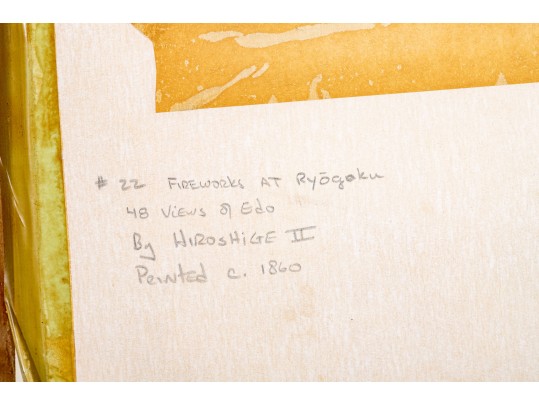 # 22 FIREWORKS AT Ryōgoku
48 Views of Edo
By HIROSHIGE II
Printed c. 1860